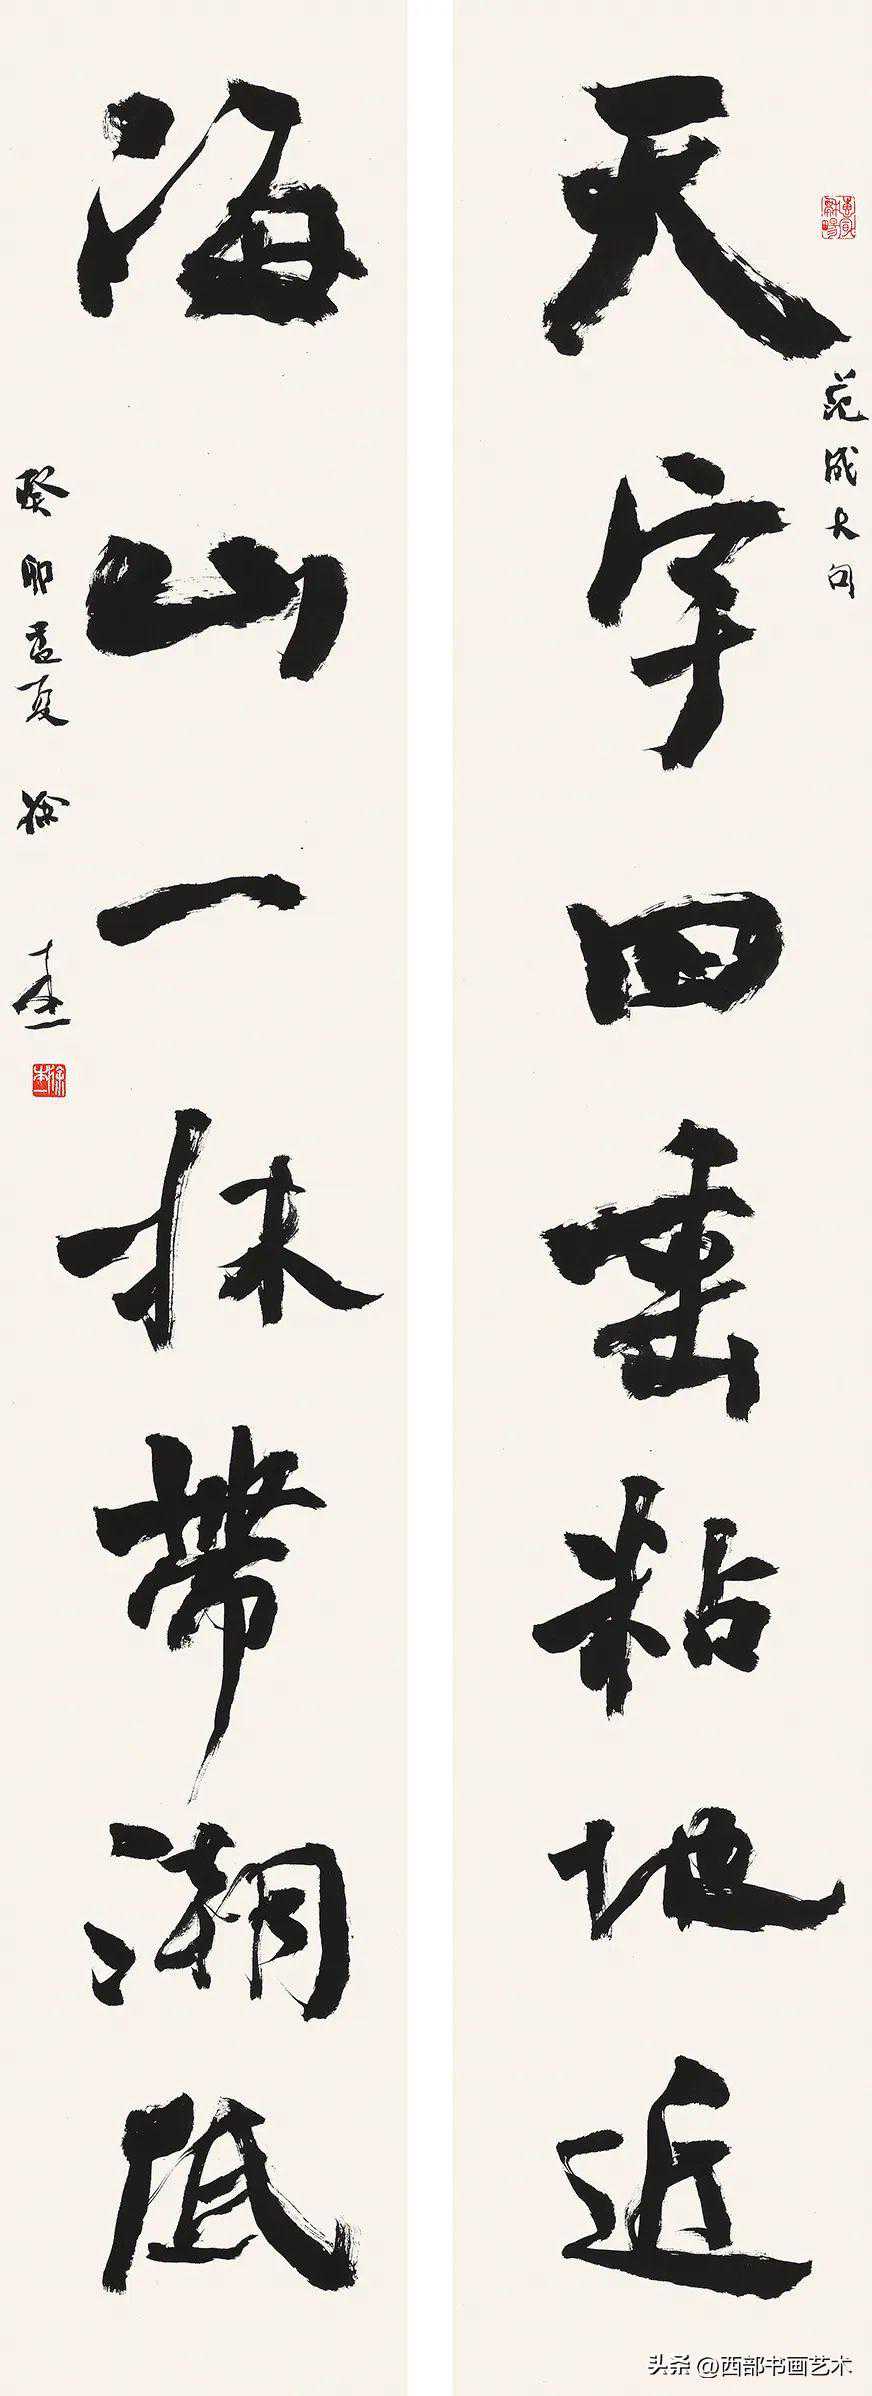 天字四垂粘地近
范成大句
海山一抹帶潮低
癸卯孟夏 徐
头条 @西部书画艺术